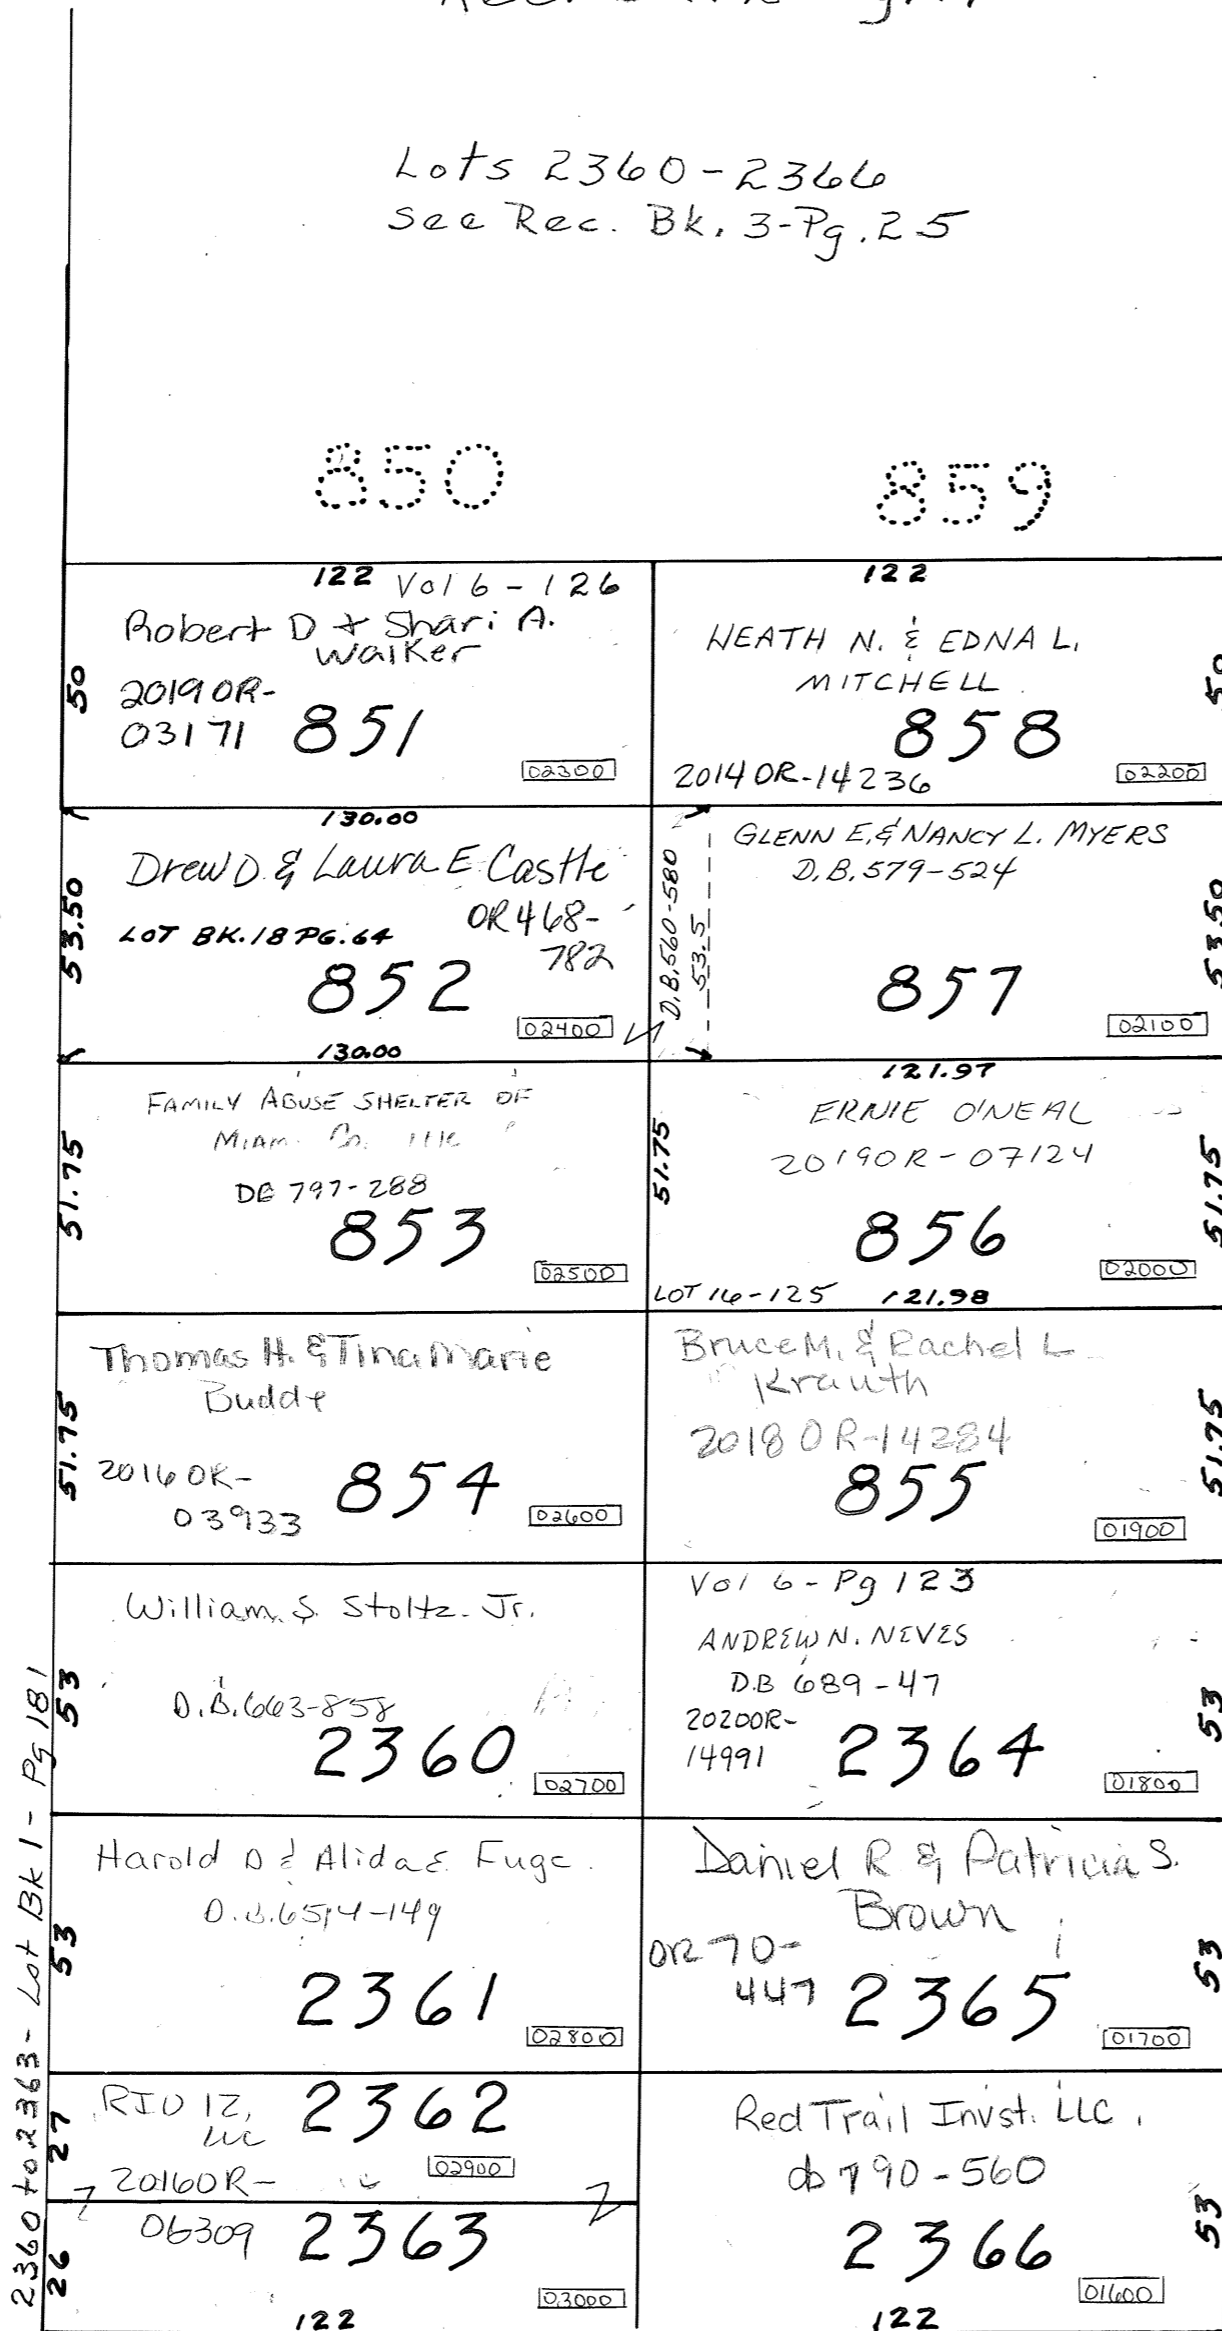 Lots 2360-2366
See Rec. Bk. 3-Pg. 25
850
859
122 Vol 6-126
Robert D & Shari A.
Walker
50
2019OR-
03171 851
02300
122
HEATH N. & EDNA L.
MITCHELL
50
858
2014OR-14236
02200
130.00
Drew D. & Laura E Castle
53.50
LOT BK. 18 PG. 64
OR 468-
782
852
02400
130.00
GLENN E. & NANCY L. MYERS
D.B. 579-524
D.B. 560-580
53.5
53.50
857
02100
FAMILY ABUSE SHELTER OF
MIAM. Co.
51.75
DB 797-288
853
02500
121.97
ERNIE O'NEAL
2019OR-07124
51.75
51.75
856
02000
LOT 16-125 121.98
Thomas H. & Tina Marie
Budde
51.75
2016OR-
03933 854
02600
Bruce M. & Rachel L
Krauth
2018OR-14284
51.75
855
01900
William S. Stoltz Jr.
53
D.B. 663-858
2360
02700
Vol 6-Pg 123
ANDREW N. NEVES
D.B 689-47
53
2020OR-
14991 2364
01800
Harold D & Alida E. Fuge
D.B. 654-149
53
2361
02800
Daniel R & Patricia S.
Brown
OR 70-
447 2365
53
01700
2360 to 2363 - Lot Bk 1 - Pg 181
27
2362
LLC
02900
2016OR-
06309 2363
26
03000
122
Red Trail Invst. LLC.
db 790-560
53
2366
01600
122